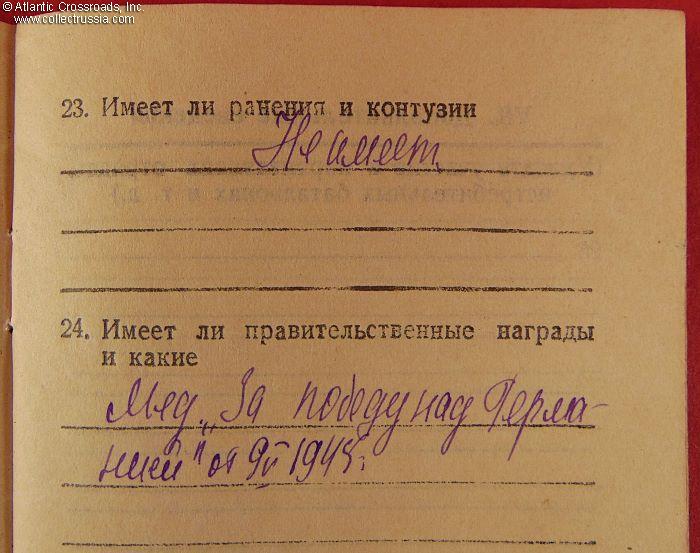 © Atlantic Crossroads, Inc.
www.collectrussia.com
23. Имеет ли ранения и контузии
Не имеет
24. Имеет ли правительственные награды
и какие
Мед. „За победу над Герма-
нией" от 9/V 1945г.